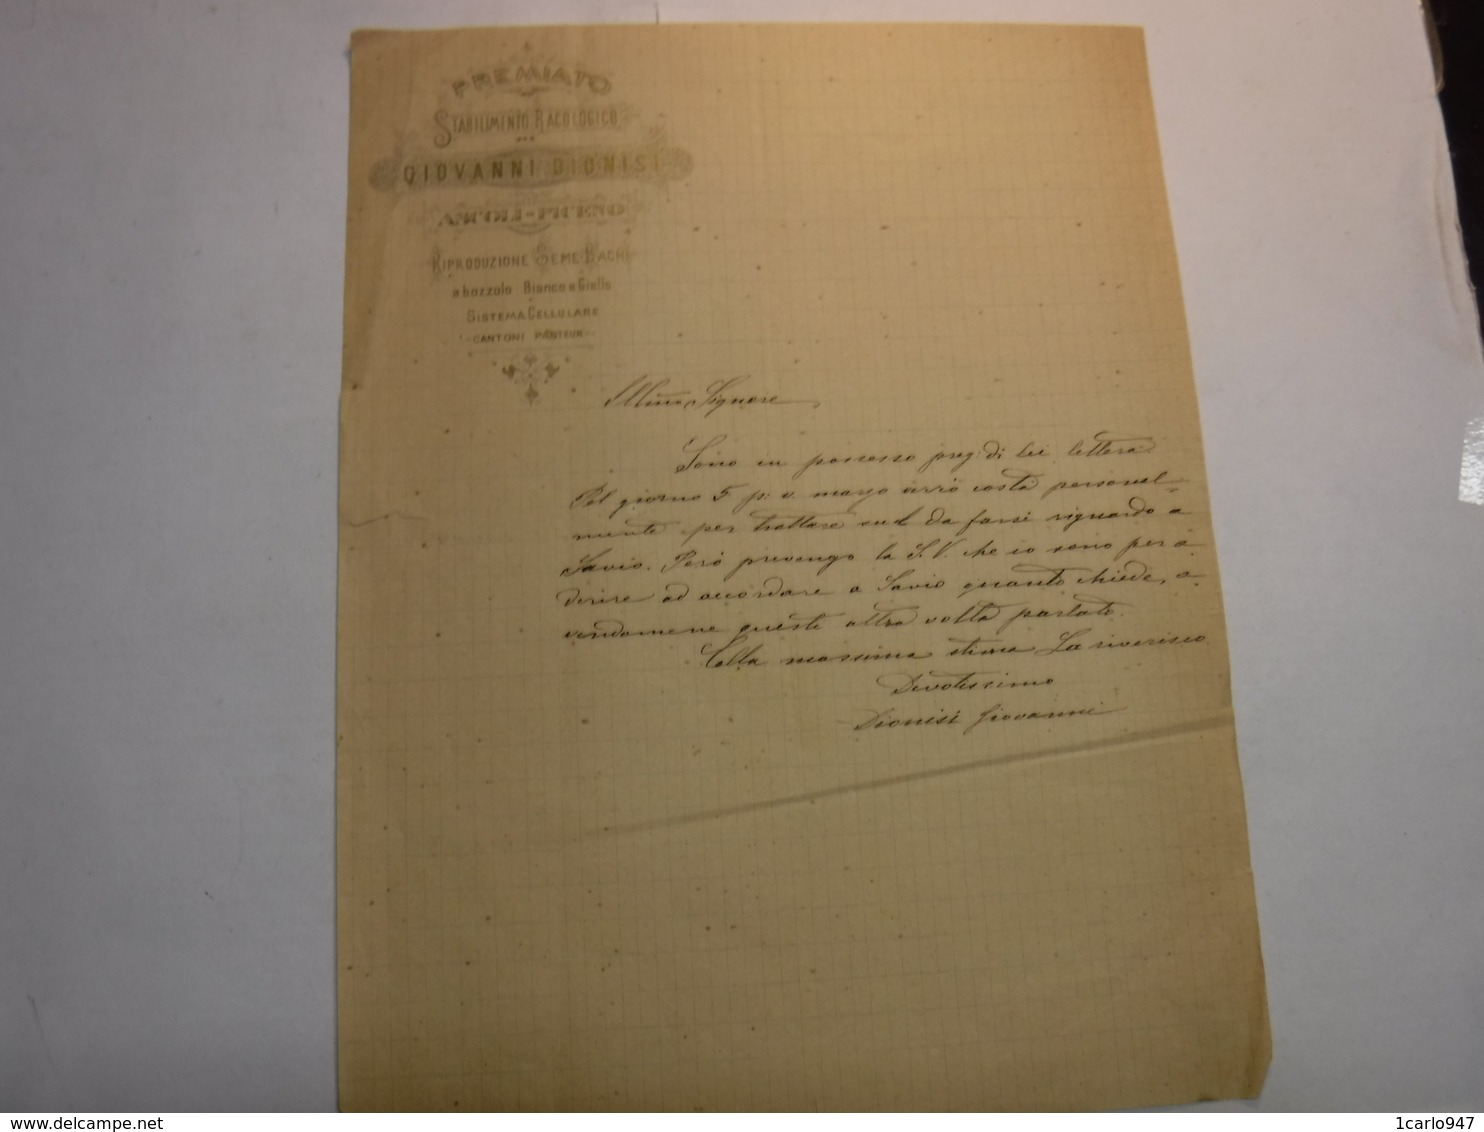 PREMIATO
STABILIMENTO BACOLOGICO
DI
GIOVANNI DIONISI
ASCOLI-PICENO
RIPRODUZIONE SEME BACHI
a bozzolo Bianco e Giallo
SISTEMA CELLULARE
CANTONI PASTEUR
Illmo Signore
Sono in possesso preg: di Lei lettera.
Pel giorno 5 p: v. marzo verrò costà personal=
mente per trattare sul da farsi riguardo a
Savio. Però prevengo la S. V. che io sono per a
derire ad accordare a Savio quanto chiede, a
vendomene questi altra volta parlato.
Colla massima stima La riverisco
Devotissimo
Dionisi Giovanni
delcampe.net
1carlo947